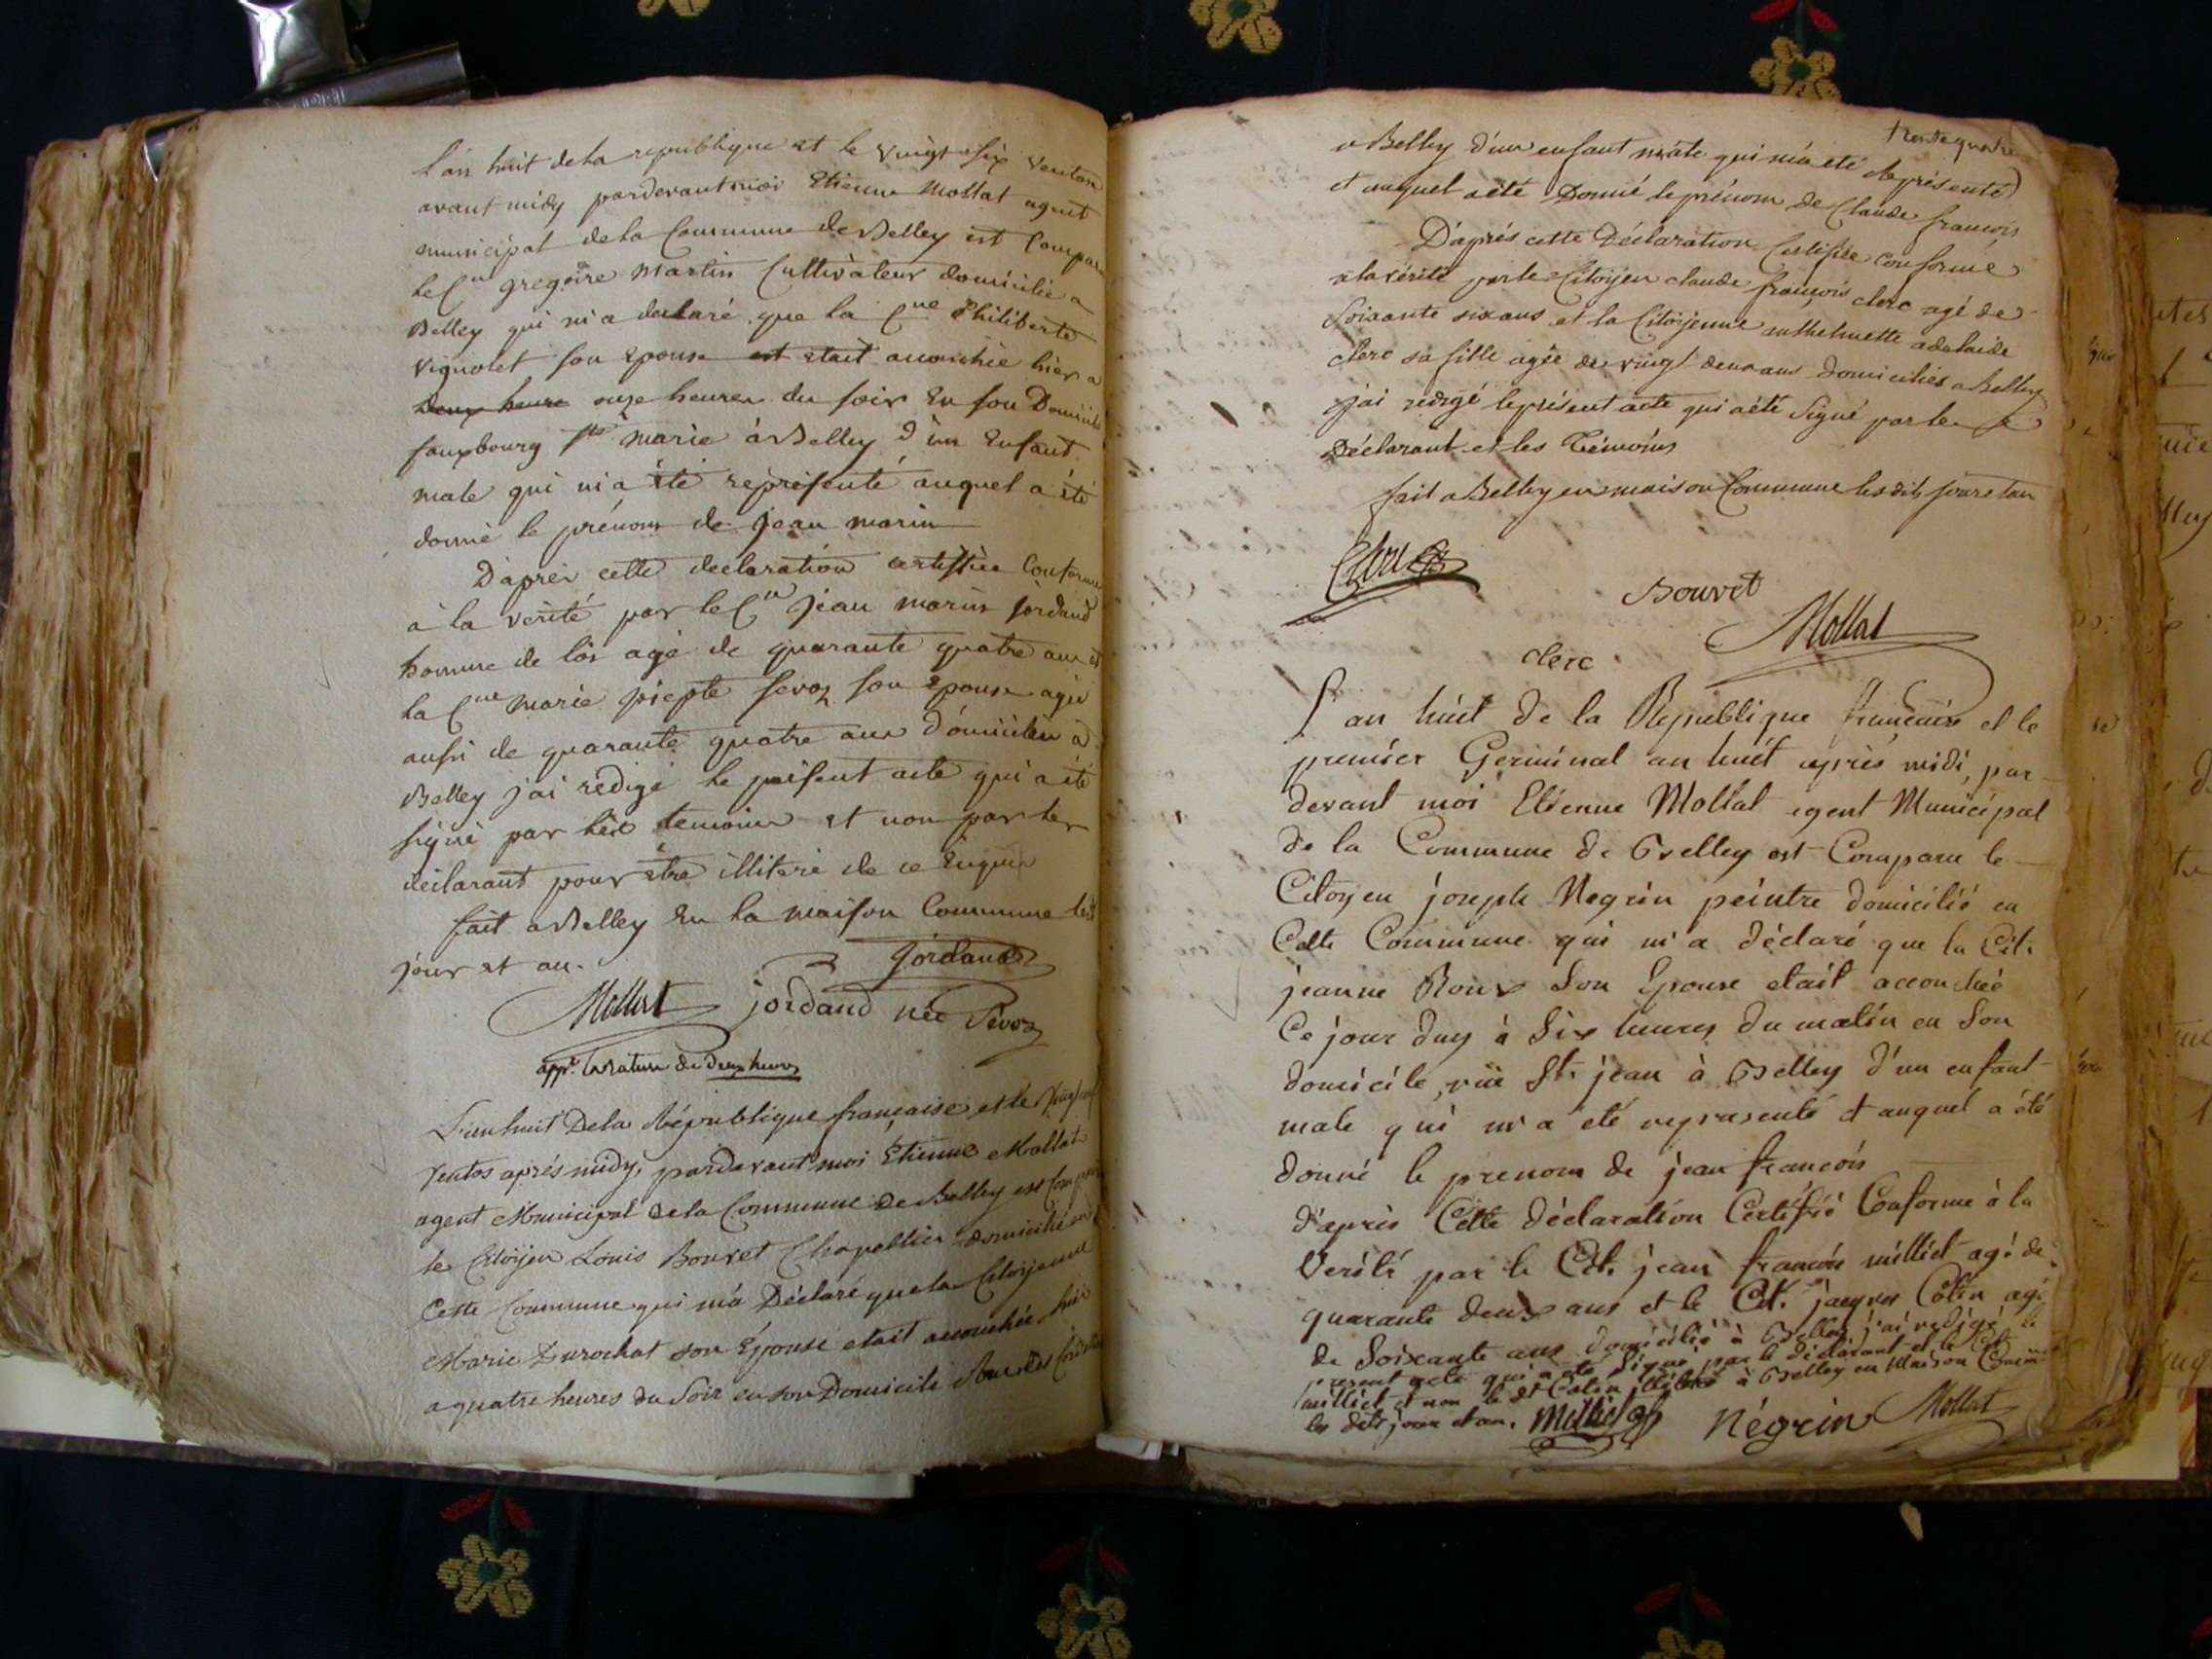 L'an huit de la republique et le vingt six ventos
avant midy pardevant moi Etienne Mollat agent
municipal de la Commune de Belley est Compar
le Cen gregoire Martin Cultivateur domicilié a
Belley qui m'a declaré que la Cne Philiberte
Vignolet son Epouse est etait accouchée hier a
deux heure onze heures du soir En son Domicile
fauxbourg Ste marie à Belley d'un Enfant
male qui m'a été représenté auquel a été
donné le prénom de jean marin
D'après cette declaration certiffiée Conforme
à la vérité par le Cen jean marin jordand
homme de loi agé de quarante quatre ans et
la Cne marie sevoz son Epouse agée
aussi de quarante quatre ans domiciliés à
Belley j'ai redigé le present acte qui a été
signé par les temoins et non par le
déclarant pour être illiteré de ce Enquis
fait a Belley En la maison Commune lesd
jour et an.
jordand
Mollat jordand née Sevoz
appé la rature de deux heures
L'an huit De la République française et le vingt
Ventos après midy, pardevant moi Etienne Mollat
agent Municipal de la Commune de Belley est Comparu
le Citoyen Louis Bouvet Chapellier domicilié en
Cette Commune qui m'a Déclaré que la Citoyenne
Marie Durochat son Epouse etait accouchée hier
a quatre heures du Soir en son Domicile Rue des
trente quatre
a Belley d'un enfant mâle qui m'a été représenté
et auquel a été Donné le prénom de Claude françois
D'après cette Déclaration Certifiée conforme
a la vérité par le Citoyen claude françois clerc agé de
Soixante six ans et la Citoyenne anthelmette adelaide
clerc sa fille agée de vingt deux ans domiciliés a Belley
j'ai redigé le présent acte qui a été Signé par le
Déclarant et les Témoins
fait a Belley en maison Commune lesdits jour et an
Clerc
Bouvet
Mollat
clerc
L'an huit de la Republique française et le
premier Germinal an huit après midi, par-
devant moi Etienne Mollat agent Municipal
de la Commune de Belley est Comparu le
Citoyen joseph Negrin peintre domicilié en
Cette Commune qui m'a déclaré que la Cit.
jeanne Roux Son Epouse etait accouchée
Ce jour duy à Six heures du matin en Son
domicile, rüe St. jean à Belley d'un enfant
male qui m'a été representé et auquel a été
donné le prenom de jean françois
d'après Cette déclaration Certifié Conforme à la
Vérité par le Cit. jean francois milliet agé de
quarante deux ans et le Cit. jacques Colin agé
de Soixante ans domiciliés à Belley j'ai redigé le
present acte qui a été Signé par le déclarant et le Cit.
milliet et non le dt Colin illiteré à Belley en Maison Commune
les dits jour et an. Milliet Négrin Mollat